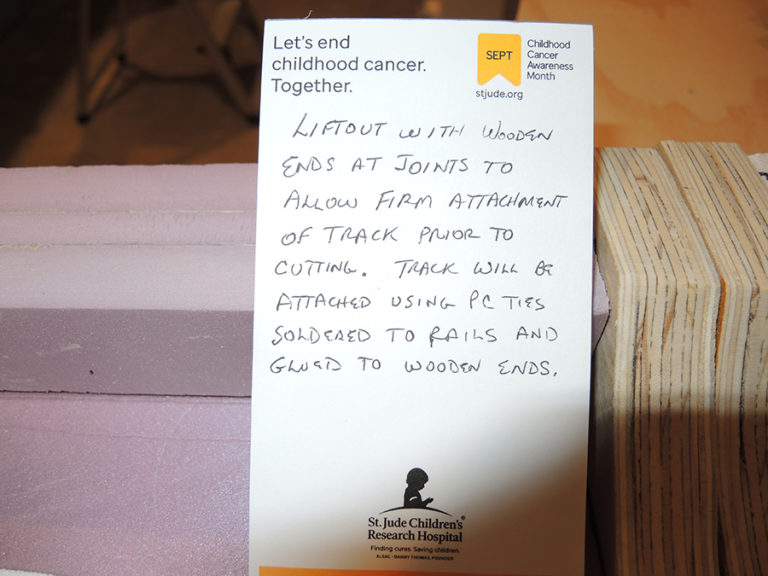 Let's end
childhood cancer.
Together.
SEPT
Childhood
Cancer
Awareness
Month
stjude.org
LIFTOUT WITH WOODEN
ENDS AT JOINTS TO
ALLOW FIRM ATTACHMENT
OF TRACK PRIOR TO
CUTTING. TRACK WILL BE
ATTACHED USING PC TIES
SOLDERED TO RAILS AND
GLUED TO WOODEN ENDS.
St. Jude Children's
Research Hospital®
Finding cures. Saving children.
ALSAC • DANNY THOMAS, FOUNDER